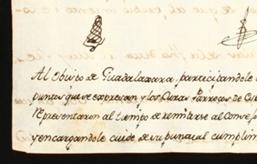 Al Obispo de Guadalaxara, participandole l
puntos que se expresan y los Curas Parrocos de Cu
representaron al tiempo de remitirse al Consej
y encargandole cuide de su puntual cumplim